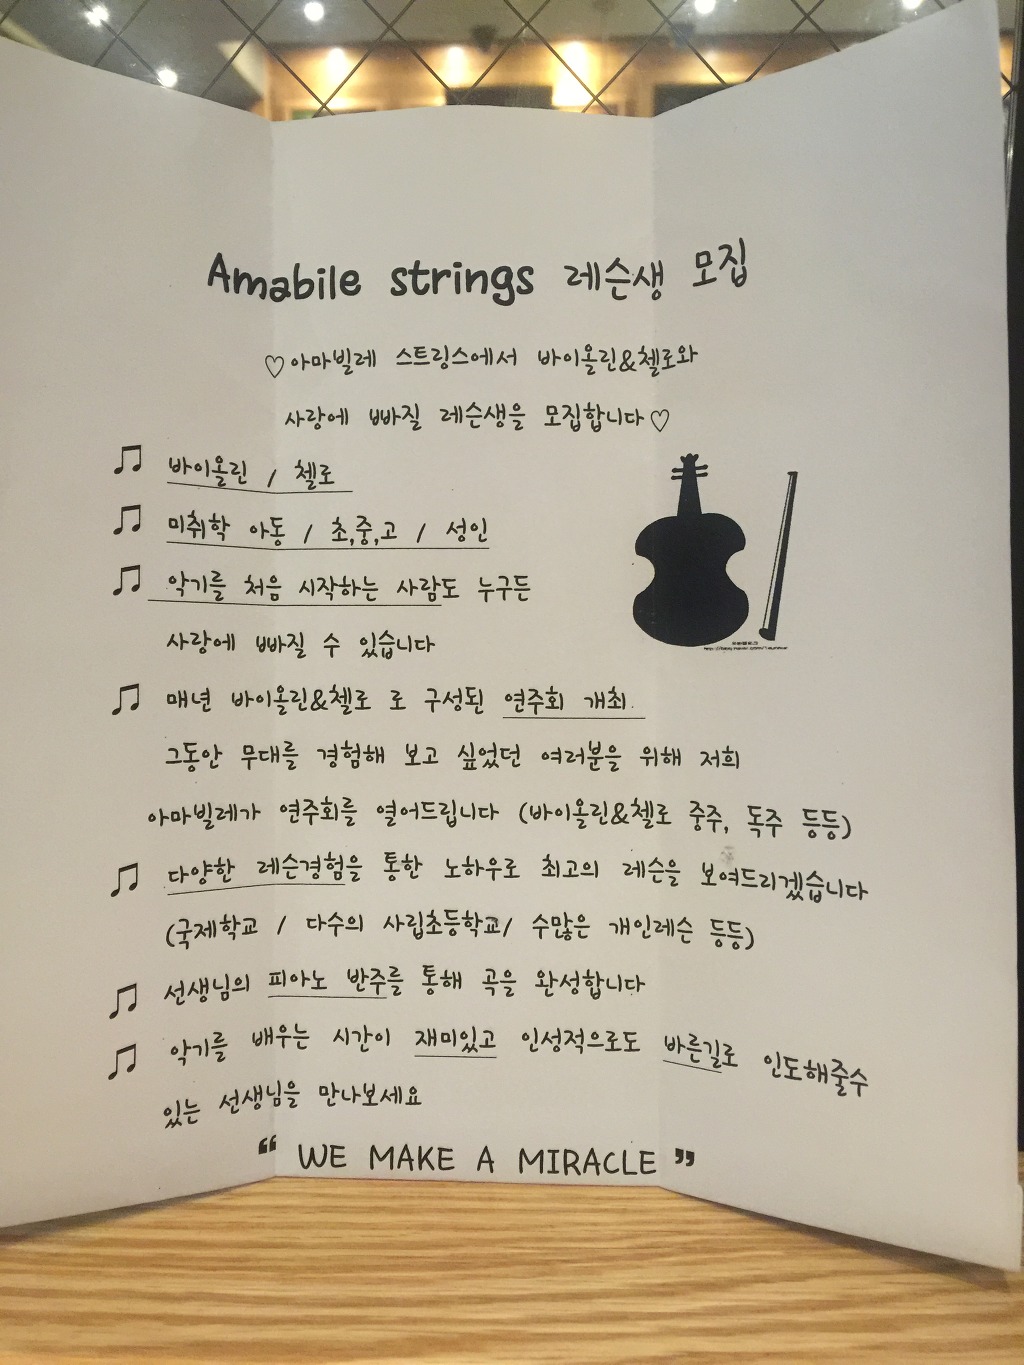 Amabile strings 레슨생 모집
♡아마빌레 스트링스에서 바이올린&첼로와
사랑에 빠질 레슨생을 모집합니다♡
♫ 바이올린 / 첼로
♫ 미취학 아동 / 초,중,고 / 성인
♫ 악기를 처음 시작하는 사람도 누구든
사랑에 빠질 수 있습니다
♫ 매년 바이올린&첼로 로 구성된 연주회 개최.
그동안 무대를 경험해 보고 싶었던 여러분을 위해 저희
아마빌레가 연주회를 열어드립니다 (바이올린&첼로 중주, 독주 등등)
♫ 다양한 레슨경험을 통한 노하우로 최고의 레슨을 보여드리겠습니다
(국제학교 / 다수의 사립초등학교/ 수많은 개인레슨 등등)
♫ 선생님의 피아노 반주를 통해 곡을 완성합니다
♫ 악기를 배우는 시간이 재미있고 인성적으로도 바른길로 인도해줄수
있는 선생님을 만나보세요
“ WE MAKE A MIRACLE ”